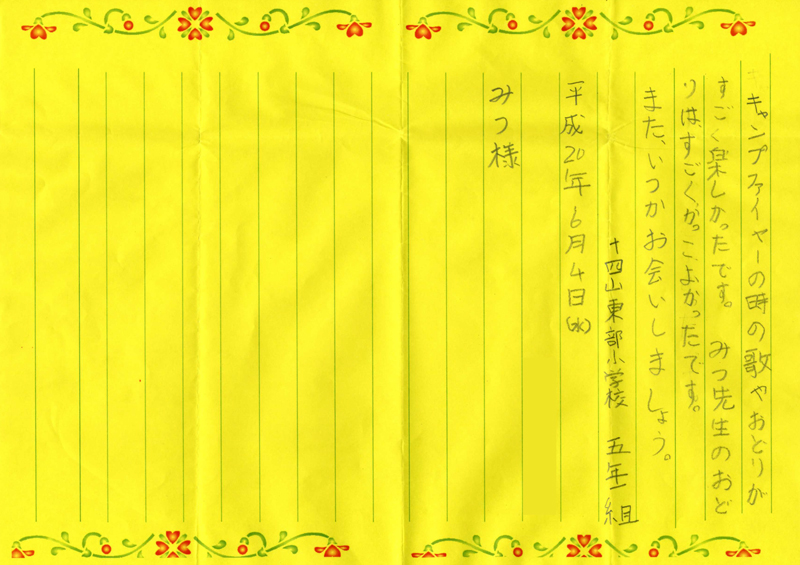 キャンプファイヤーの時の歌やおどりが
すごく楽しかったです。みつ先生のおど
りはすごくかっこよかったです。
また、いつかお会いしましょう。
十四山東部小学校 五年一組
平成20年6月4日(水)
みつ様